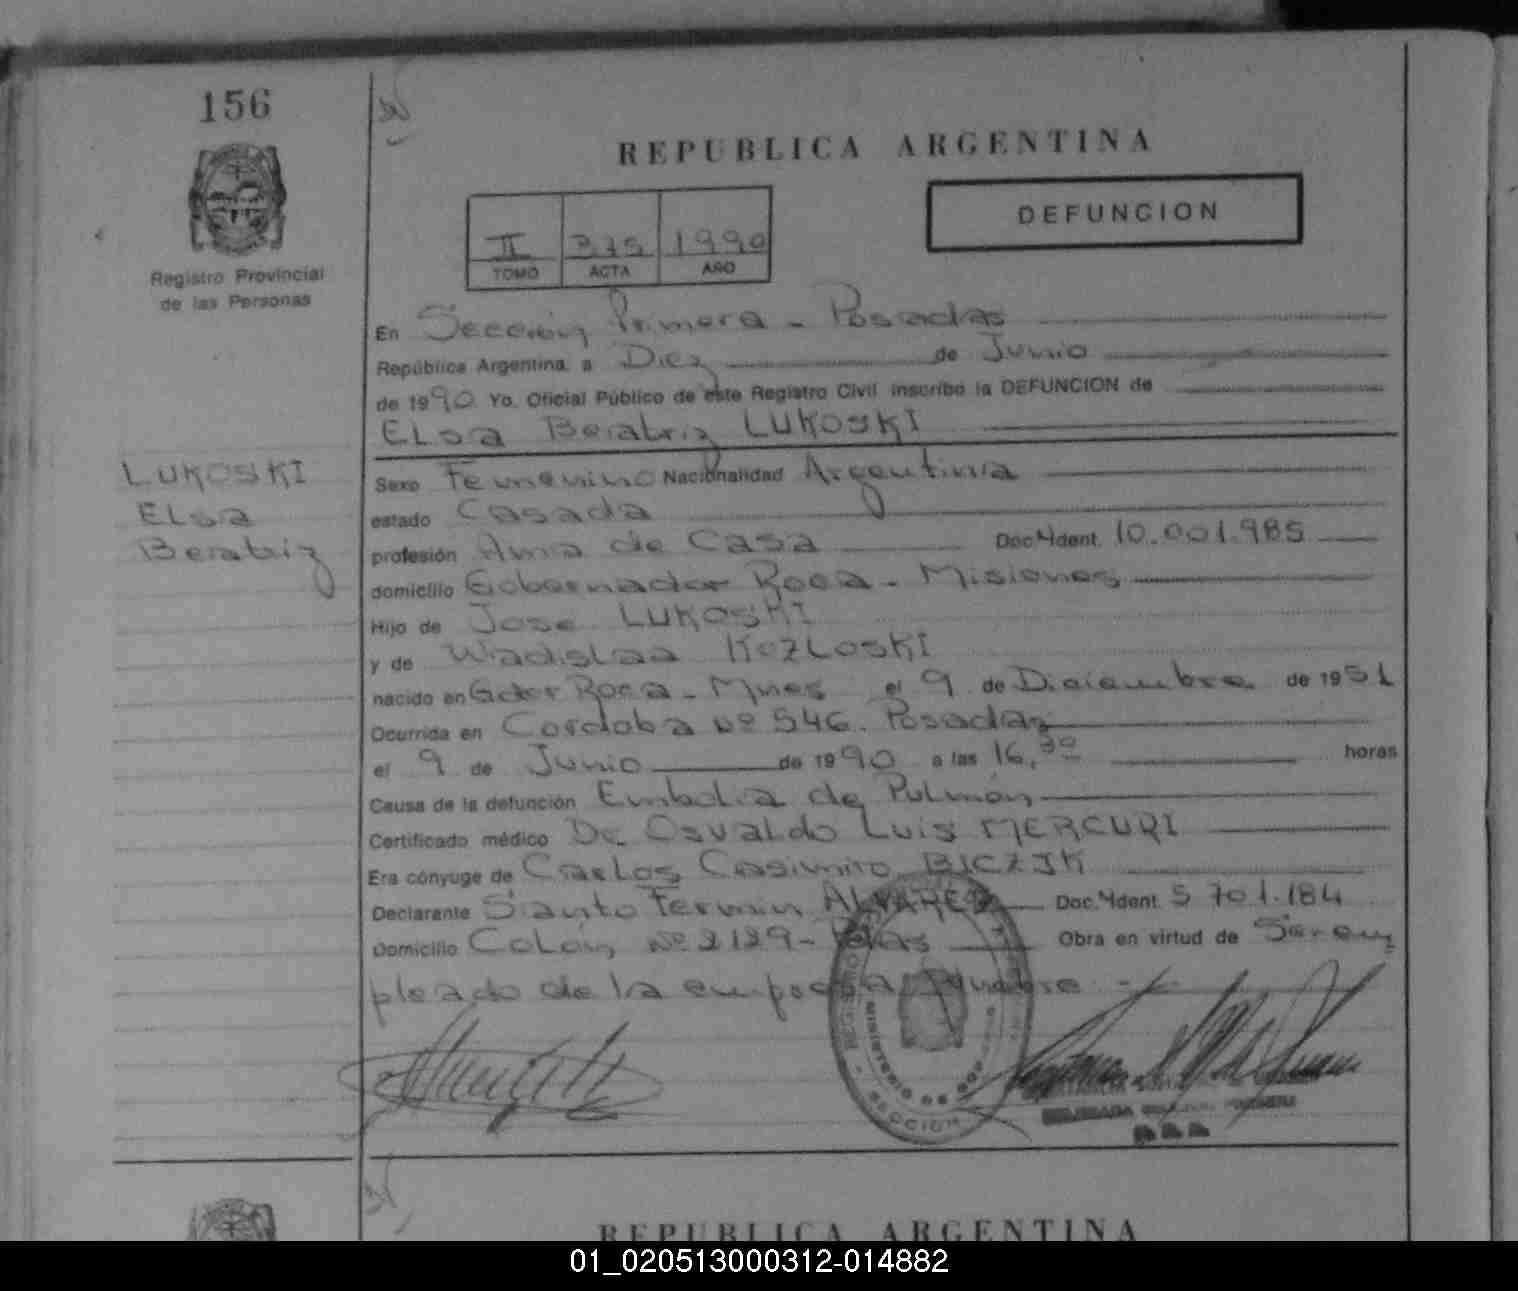 156
REPUBLICA ARGENTINA
DEFUNCION
II 375 1990
TOMO ACTA AÑO
Registro Provincial
de las Personas
En Sección Primera - Posadas
República Argentina, a Diez de Junio
de 1990 Yo, Oficial Público de este Registro Civil inscribo la DEFUNCION de
ELsa Beatriz LUKOSKI
LUKOSKI
ELsa
Beatriz
Sexo Femenino Nacionalidad Argentina
estado Casada
profesión Ama de Casa Doc. Ident. 10.001.985
domicilio Gobernador Roca - Misiones
Hijo de Jose LUKOSKI
y de Wladislaa KOZLOSKI
nacido en Gdor Roca - Mnes el 9 de Diciembre de 1951
Ocurrida en Cordoba Nº 546. Posadas
el 9 de Junio de 1990 a las 16,30 horas
Causa de la defunción Embolia de Pulmón
Certificado médico Dr Osvaldo Luis MERCURI
Era cónyuge de Carlos Casimiro
Declarante Santo Fermin ALVAREZ Doc. Ident. 5 701.184
Domicilio Colón Nº 2129 - Pdas Obra en virtud de Ser em
pleado de la empresa
REGISTRO
MINISTERIO DE
SECCION
DELEGADA
REPUBLICA ARGENTINA
01_020513000312-014882